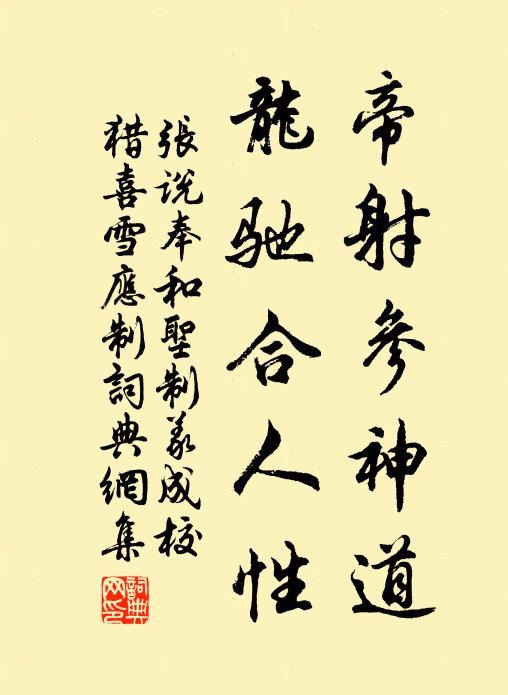 帝射參神道
龍馳合人性
張說奉和聖制義成校
猎喜雪應制詞典網集
詞典网印